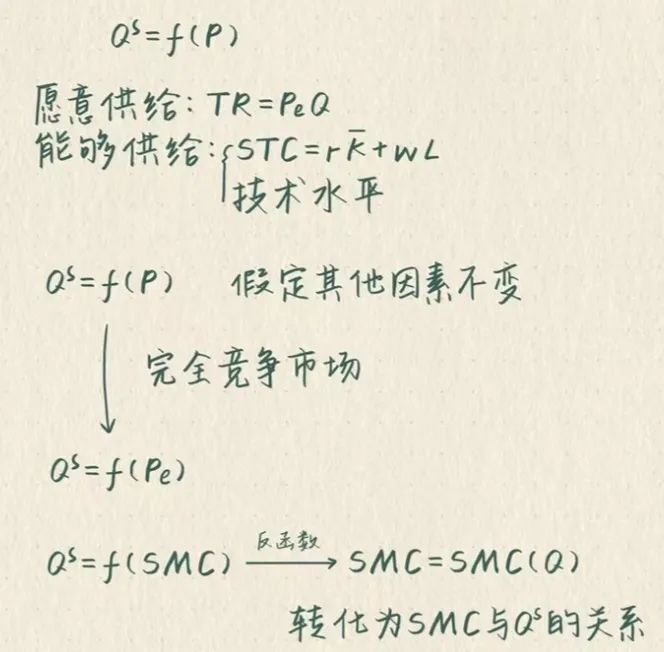 Qˢ=f(P)
愿意供给: TR=PeQ
能够供给:{STC=rK̅+wL
技术水平
Qˢ=f(P) 假定其他因素不变
完全竞争市场
Qˢ=f(Pe)
Qˢ=f(SMC) 反函数→ SMC=SMC(Q)
转化为SMC与Qˢ的关系